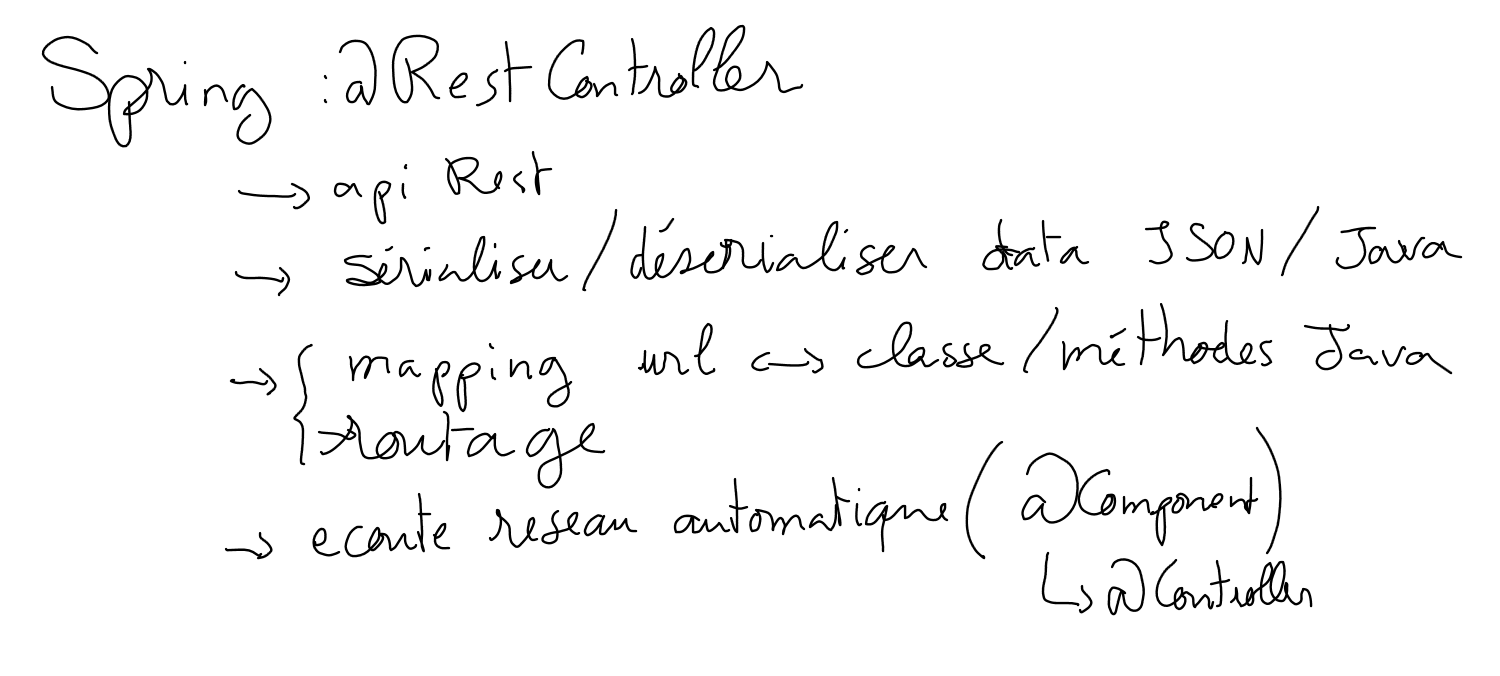 Spring : @RestController
→ api Rest
→ sérialiser/déserialiser data JSON/Java
→ { mapping url ↔ classe/méthodes Java
→ routage
→ ecoute reseau automatique (@Component)
↳ @Controller